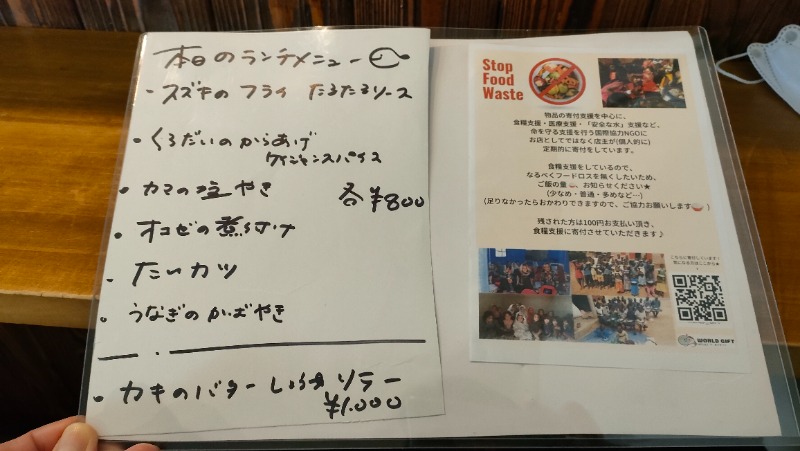 本日のランチメニュー
・スズキのフライ たるたるソース
・くろだいのからあげ
ケイジャンスパイス
・カマの塩やき
各¥800
・オコゼの煮付け
・たいカツ
・うなぎのかばやき
・カキのバターしょうゆソテー
¥1,000
Stop
Food
Waste
物品の寄付支援を中心に、
食糧支援・医療支援・「安全な水」支援など、
命を守る支援を行う国際協力NGOに
お店としてではなく店主が(個人的に)
定期的に寄付をしています。
食糧支援をしているので、
なるべくフードロスを無くしたいため、
ご飯の量🍚、お知らせください★
(少なめ・普通・多めなど…)
(足りなかったらおかわりできますので、ご協力お願いします🍚)
残された方は100円お支払い頂き、
食糧支援に寄付させていただきます♪
WORLD GIFT